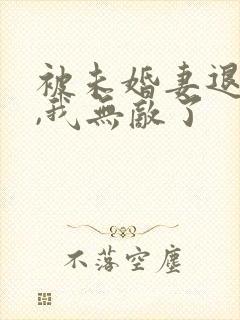 被未婚妻退
,我無敵了
不落空塵